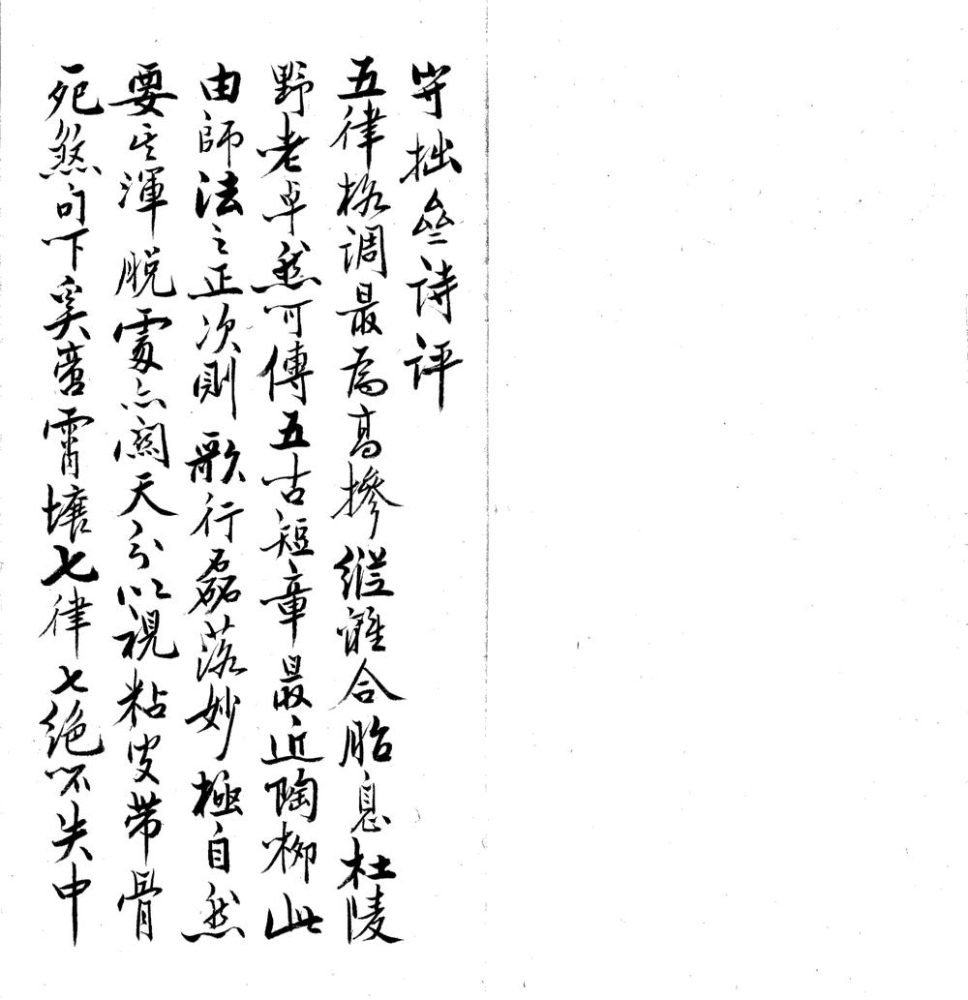 守拙叄诗评
五律格调最為高摻縱離合胎息杜陵
野老卓然可傳五古短章最近陶柳此
由師法之正次則歌行磊落妙極自然
要其渾脱處亦關天分以視粘皮带骨
死煞句下奚啻霄壤七律七絶不失中